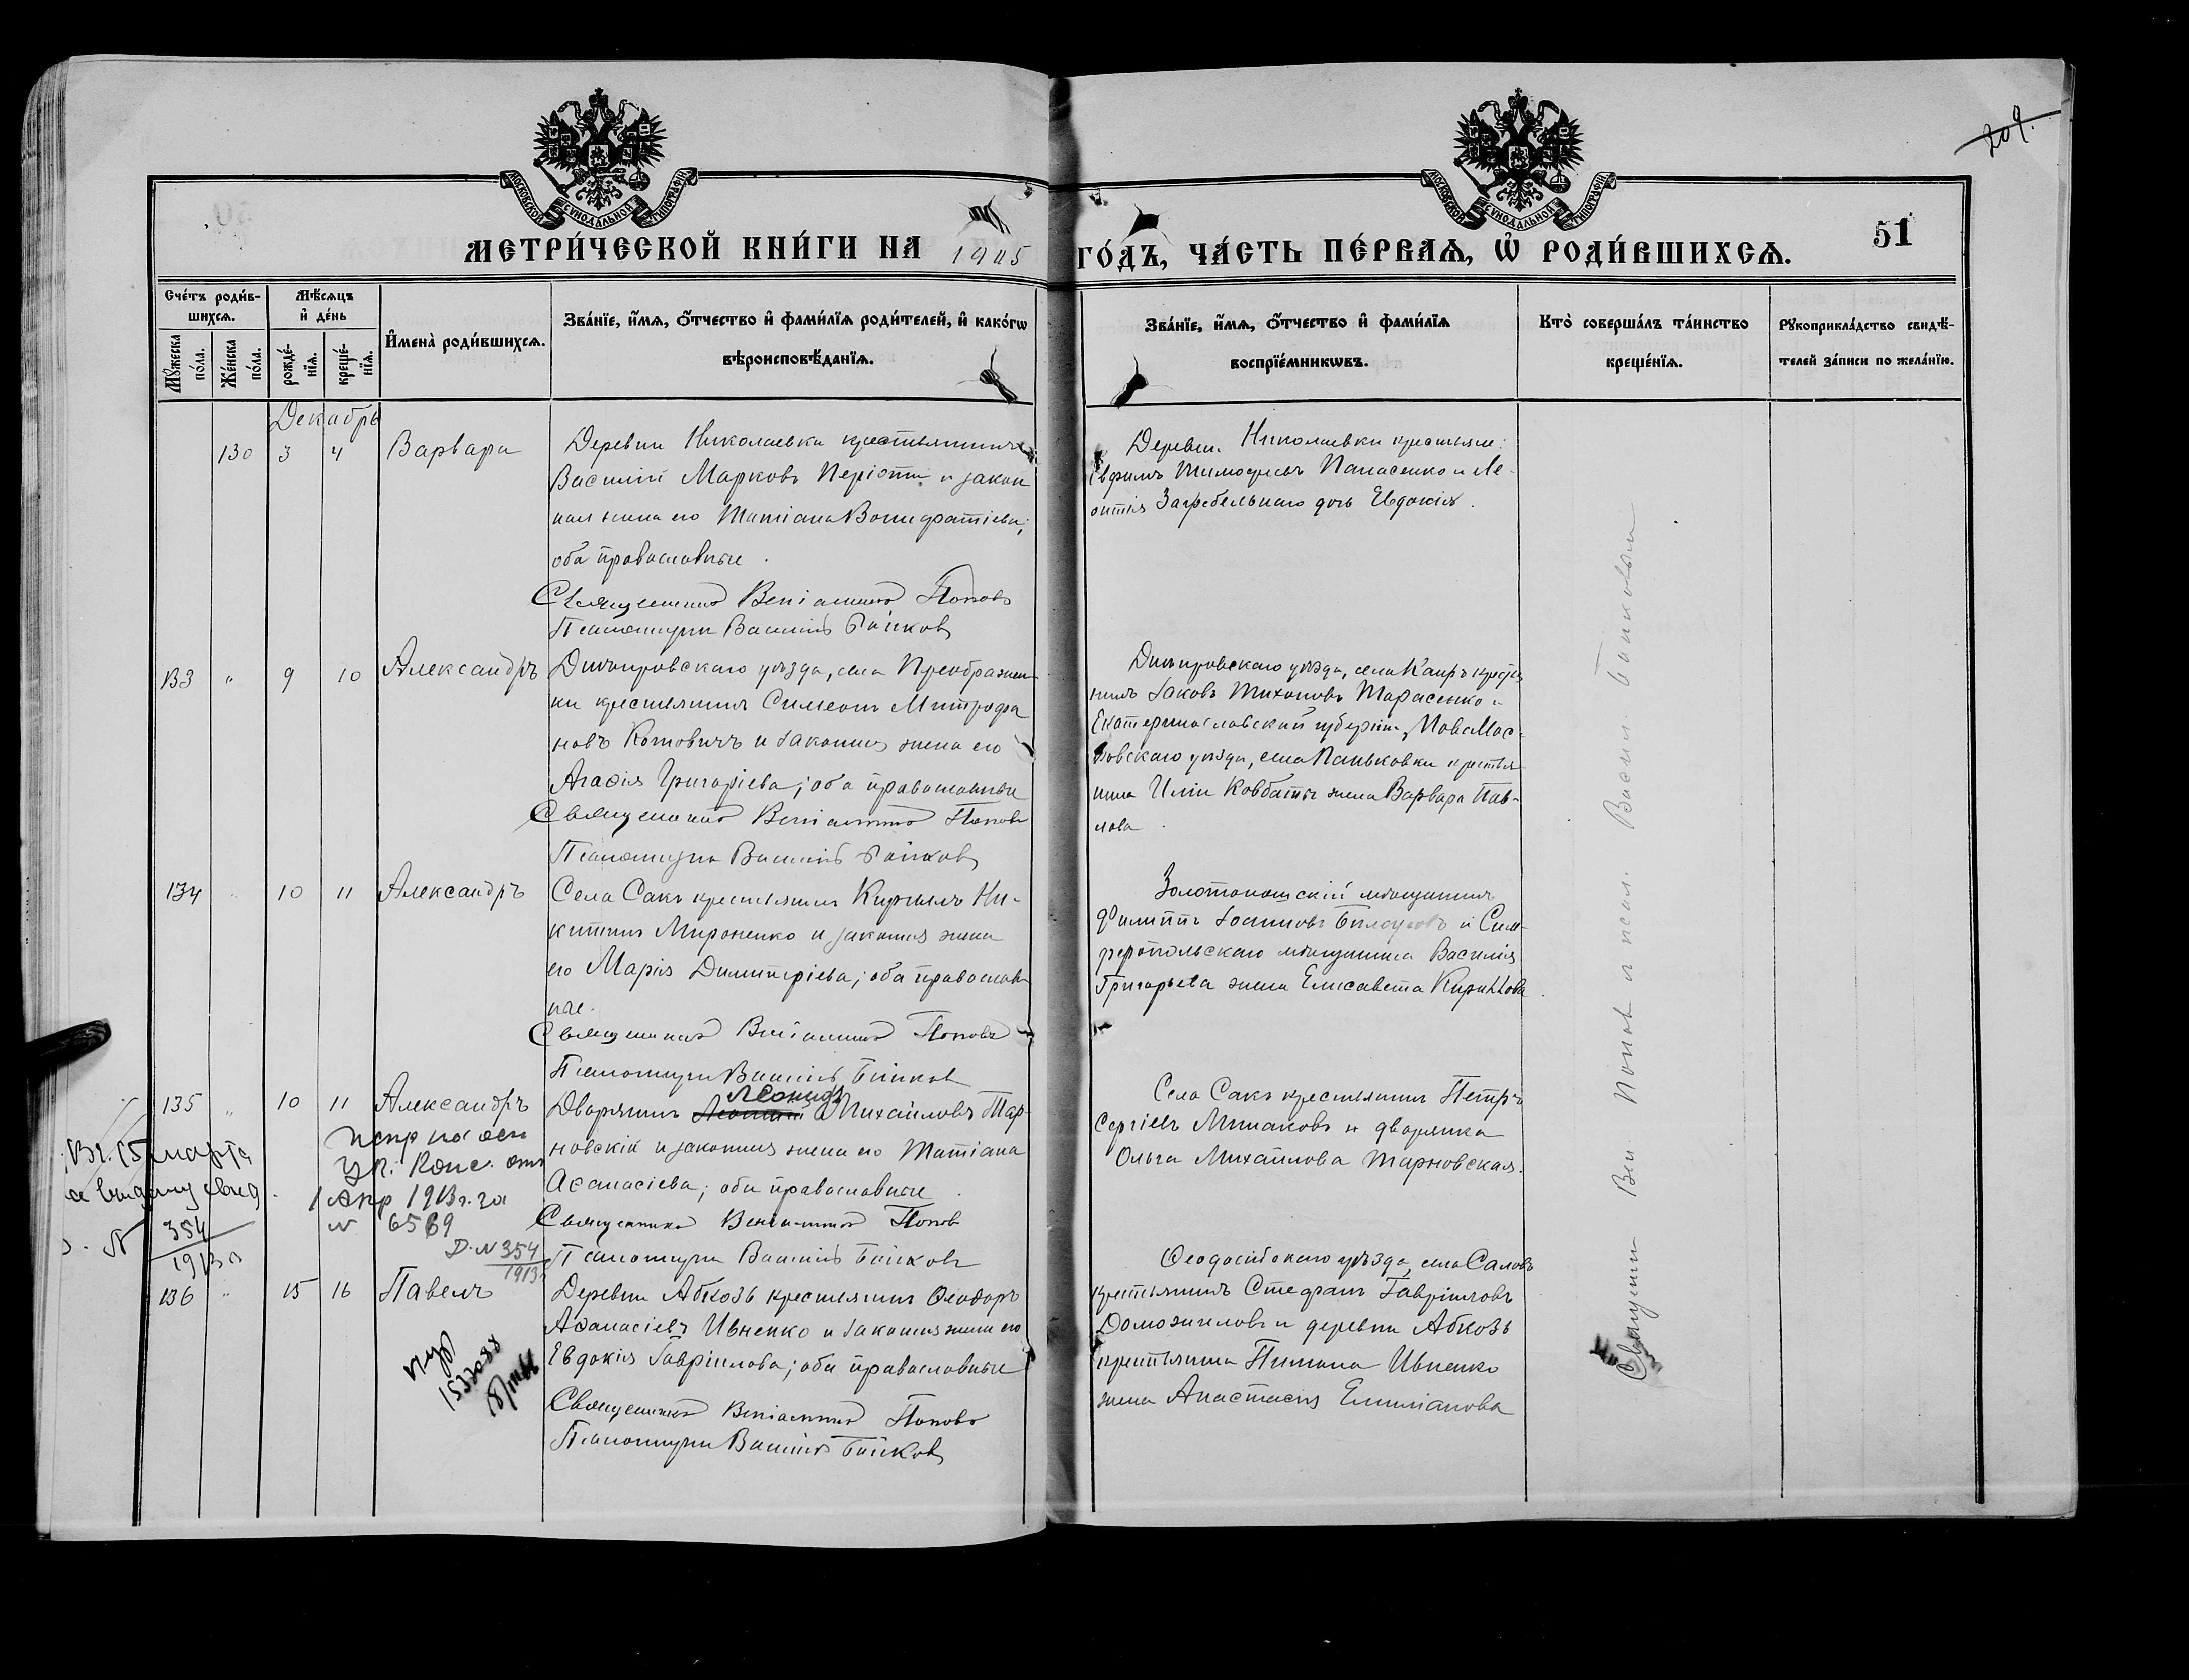 209.
МОСКОВСКОЙ СѴНОДАЛЬНОЙ ТИПОГРАФІИ
МОСКОВСКОЙ СѴНОДАЛЬНОЙ ТИПОГРАФІИ
МЕТРИ́ЧЕСКОЙ КНИ́ГИ НА 1905 ГО́ДЪ, ЧА́СТЬ ПЕ́РВАѦ, Ѡ РОДИ́ВШИХСѦ.
51
Сче́тъ роди́в-
шихсѧ.
Мꙋ́жеска по́ла.
Же́нска по́ла.
Мѣ́сѧцъ
и҆ де́нь
рожде́-
нїѧ.
креще́-
нїѧ.
И҆мена̀ роди́вшихсѧ.
Зва́нїе, и҆́мѧ, ѻ҆́тчество и҆ фами́лїѧ роди́телей, и҆ како́гѡ
вѣроисповѣ́данїѧ.
Зва́нїе, и҆́мѧ, ѻ҆́тчество и҆ фами́лїѧ
воспрїе́мникѡвъ.
Кто̀ соверша́лъ та́инство
креще́нїѧ.
Рꙋкоприкла́дство свидѣ́-
телей за́писи по жела́нїю.
Декабрь
130 3 4 Варвара
Деревни Николаевки крестьянинъ
Василій Марковъ Неріоти и закон
ная жена его Татіана Вонифатіева;
оба православные.
Священникъ Веніаминъ Поповъ
Псаломщикъ Василій Байковъ
Деревни Николаевки крестьяне:
Евфимъ Тимофеевъ Панасенко и Ле-
онтія Загребельнаго дочь Евдокія.
133 " 9 10 Александръ
Днѣпровскаго уѣзда, села Преображен-
ки крестьянинъ Симеонъ Митрофа
новъ Котовичъ и законная жена его
Агафія Григоріева; оба православные
Священникъ Веніаминъ Поповъ
Псаломщикъ Василій Байковъ
Днѣпровскаго уѣзда, села Каиръ крестья
нинъ Іаковъ Тихоновъ Тарасенко и
Екатеринославской губерніи, Новомос-
ковскаго уѣзда, села Паньковки крестья
нина Иліи Ковбаты жена Варвара Пав-
лова.
134 " 10 11 Александръ
Села Сакъ крестьянинъ Кириллъ Ни-
китинъ Мироненко и законная жена
его Марія Димитріева; оба православ
ные.
Священникъ Веніаминъ Поповъ
Псаломщикъ Василій Байковъ
Золотоношскій мѣщанинъ
Филиппъ Іоанновъ Бѣлоусовъ и Сим-
феропольскаго мѣщанина Василія
Григорьева жена Елисавета Кириллова.
135 " 10 11 Александръ
Дворянинъ Леонидъ Михайловъ Тар-
новскій и законная жена его Татіана
Аѳанасіева; оба православные.
Священникъ Веніаминъ Поповъ
Псаломщикъ Василій Байковъ
Села Сакъ крестьянинъ Петръ
Сергіевъ Минаковъ и дворянка
Ольга Михайлова Тарновская.
испр на осн
ук. Конс. отъ
1 апр 1913 г. за
№ 6569
Д. № 354
1913 г
15 марта
выдачу свид.
№ 354
1913 г
136 " 15 16 Павелъ
Деревни Абкозь крестьянинъ Ѳеодоръ
Аѳанасіевъ Ивненко и законная жена его
Евдокія Гавріилова; оба православные
Священникъ Веніаминъ Поповъ
Псаломщикъ Василій Байковъ
Ѳеодосійскаго уѣзда, села Саловъ
крестьянинъ Стефанъ Гавріиловъ
Доможиловъ и деревни Абкозь
крестьянина Пимона Ивненко
жена Анастасія Емиліанова
Священникъ Вен Поповъ и псал. Васил. Байковымъ